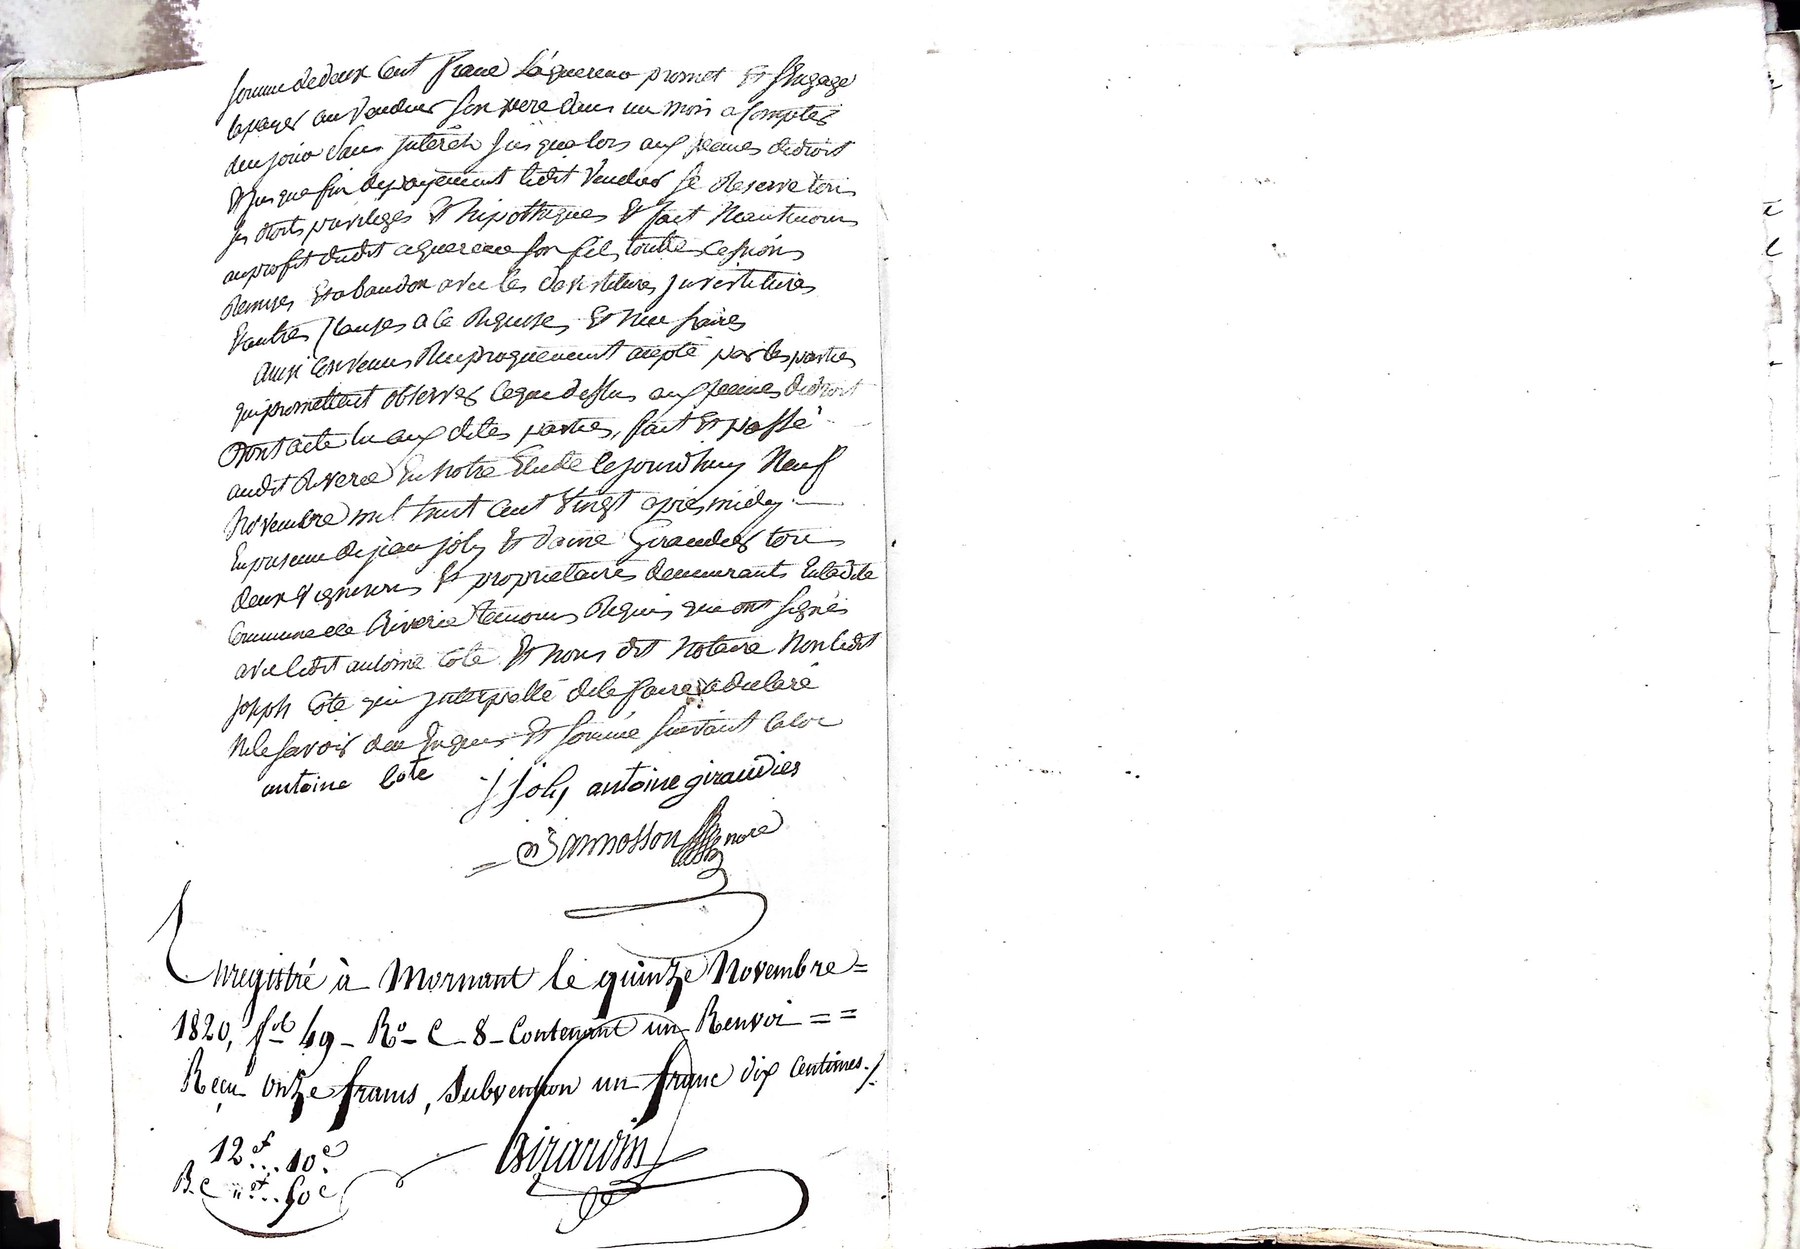 somme de deux Cent franc L'aquereur promet Et s'Engage
la payer au Vendeur son pere dans un mois a Compter
du jour sans jnterêts jusque lors aux peines de droit
Et jusque fin de payement ledit Vendeur se Reserve tous
ses droits privileges Et hipothiques Et fait Neantmoins
au profit dudit aquereur son fils toutes cessions
Remises Et abandon avec les devestitures jnvestitures
Et autres clauses a ce Requises Et necessaires
ainsi Convenu Reciproquement acepté par les parties
qui promettent observer ceque dessus aux peines de droit
Dont acte lu aux dites parties, fait Et passé
audit Riverie En Notre Etude le jourdhuy Neuf
Novembre mil huit Cent Vingt après midy
En presence de jean joly Et d'aine Giraudier tous
deux Vignerons Et proprietaires demeurants En la dite
Commune de Riverie temoins Requis qui ont signés
avec ledit antoine Cote Et nous dit Notaire Non ledit
joseph Cote qui jnterpellé de le faire a declaré
Ne le savoir de ce Enquis Et sommé suivant la loi
antoine Cote j joly antoine giraudier
Jannosson nore
Enregistré à Mornant le quinze Novembre =
1820, fol 49 - Ro - C - 8 - Contenant un Renvoi = =
Reçu onze francs, Subvention un franc dix Centimes ./
12 f... 10 c
Girardin
R. C " f... 50 c